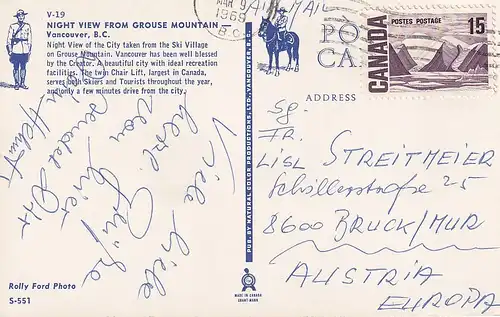 V-19
NIGHT VIEW FROM GROUSE MOUNTAIN
Vancouver, B.C.
Night View of the City taken from the Ski Village
on Grouse Mountain. Vancouver has been well blessed
by the Creator. A beautiful city with ideal recreation
facilities. The twin Chair Lift, largest in Canada,
serves both Skiers and Tourists throughout the year,
and only a few minutes drive from the city.
Viele liebe
herzl. Grüße
von
Rolly Ford Photo
S-551
PUB. BY NATURAL COLOR PRODUCTIONS, LTD., VANCOUVER, B.C.
MADE IN CANADA
MAR 9
1968
B.C.
AIR MAIL
PO
CA
ADDRESS
POSTES POSTAGE
15
CANADA
Sg.
FR.
LISL STREITMEIER
Schillerstraße 25
8600 BRUCK/MUR
AUSTRIA
EUROPA